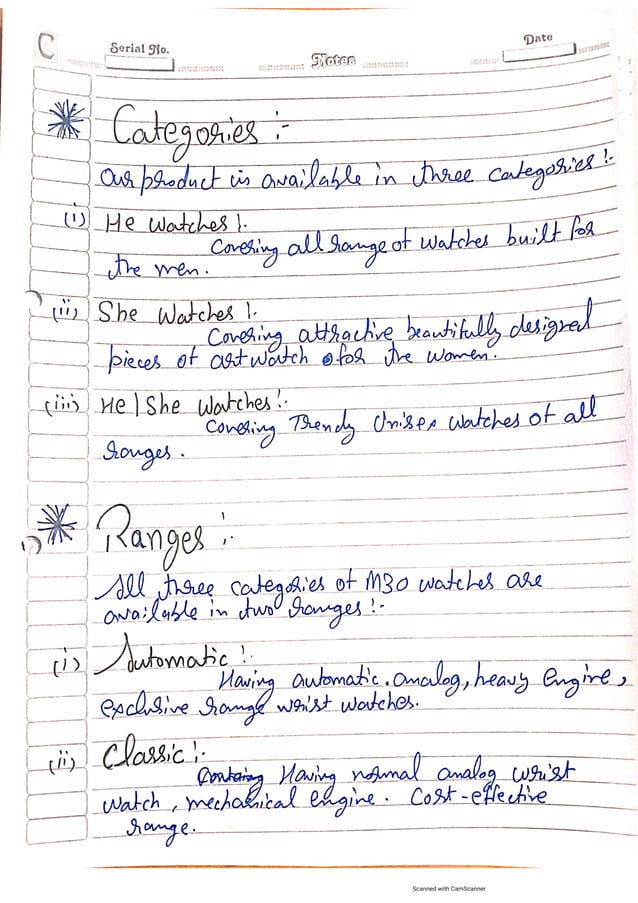 C
Serial No.
Notes
Date
Categories :-
Our product is available in three categories :-
(i) He Watches :-
Covering all range of watches built for
the men.
(ii) She Watches :-
Covering attractive beautifully designed
pieces of art watch for the women.
(iii) He | She Watches :-
Covering Trendy Unisex watches of all
ranges.
Ranges :-
All three categories of M30 watches are
available in two ranges :-
(i) Automatic :-
Having automatic. analog, heavy engine,
exclusive range wrist watches.
(ii) Classic :-
Having normal analog wrist
watch, mechanical engine. Cost-effective
range.
Scanned with CamScanner